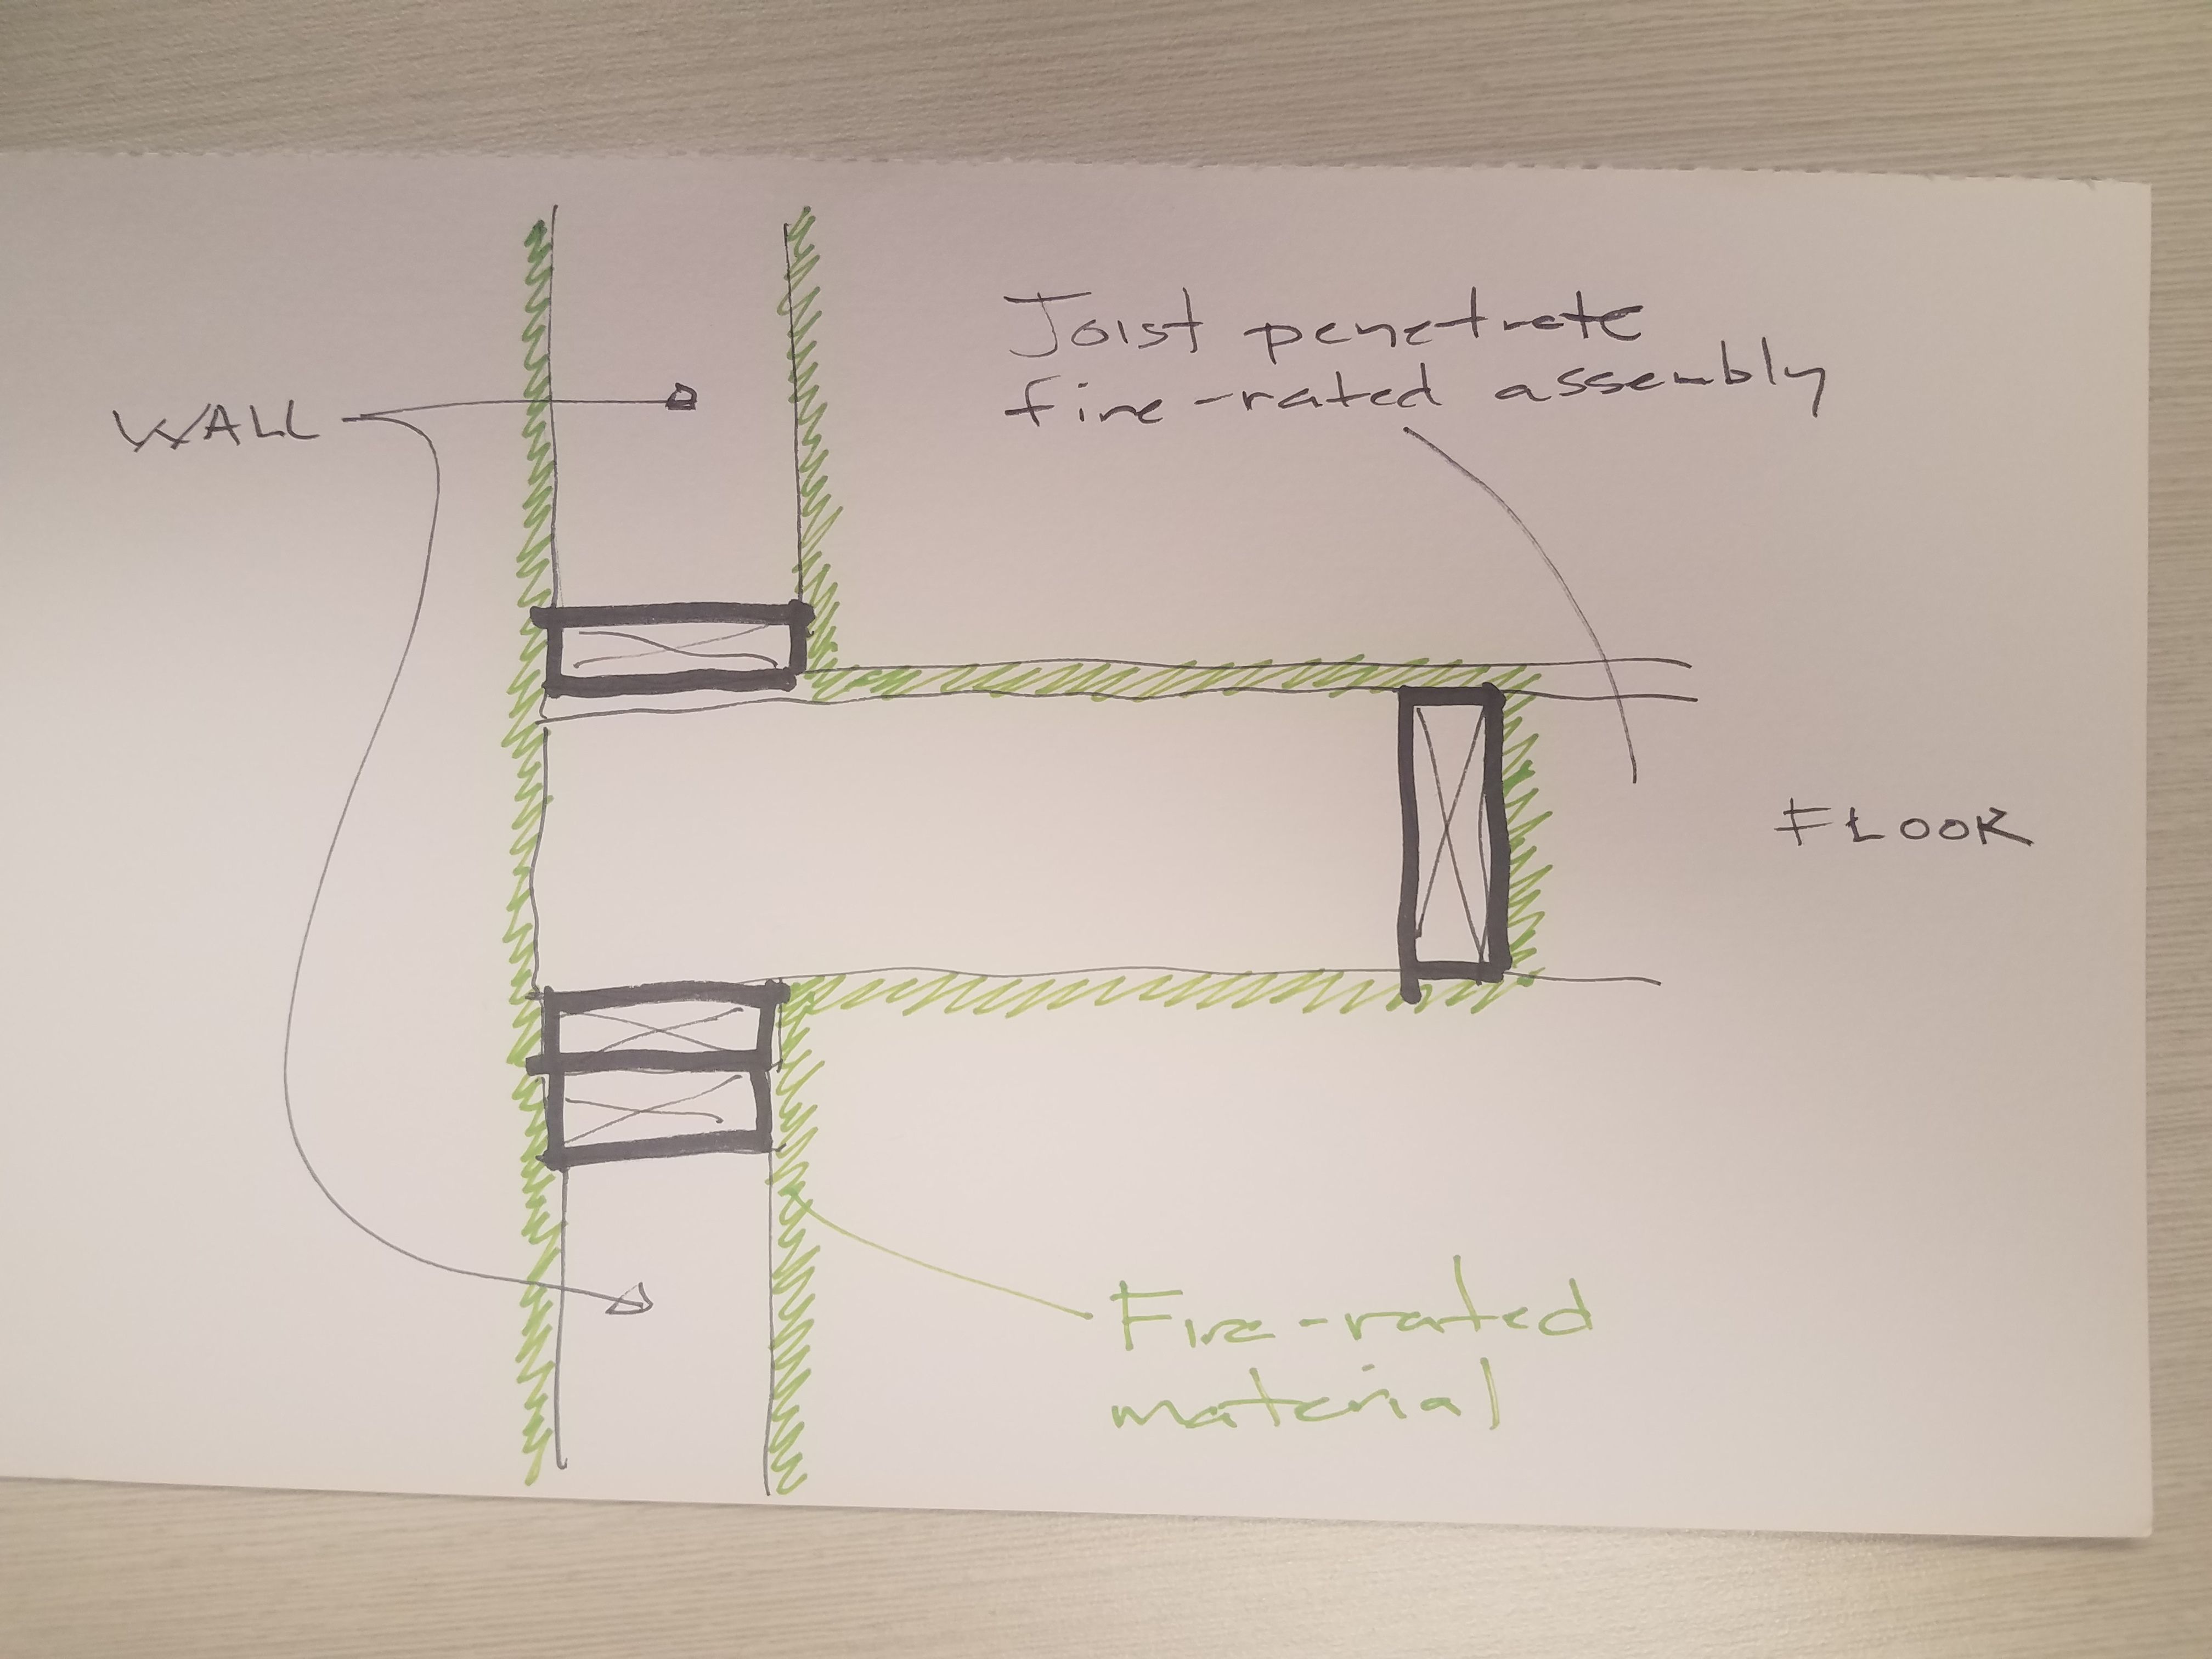 Joist penetrate
fire-rated assembly
WALL
FLOOR
Fire-rated
material